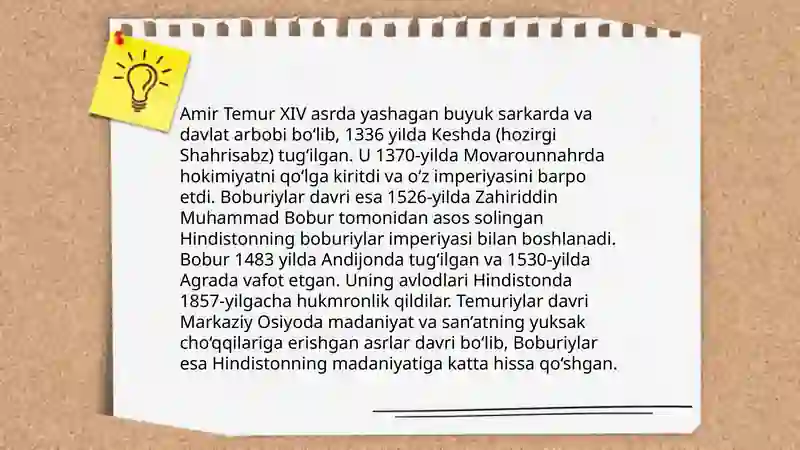 Amir Temur XIV asrda yashagan buyuk sarkarda va
davlat arbobi bo‘lib, 1336 yilda Keshda (hozirgi
Shahrisabz) tug‘ilgan. U 1370-yilda Movarounnahrda
hokimiyatni qo‘lga kiritdi va o‘z imperiyasini barpo
etdi. Boburiylar davri esa 1526-yilda Zahiriddin
Muhammad Bobur tomonidan asos solingan
Hindistonning boburiylar imperiyasi bilan boshlanadi.
Bobur 1483 yilda Andijonda tug‘ilgan va 1530-yilda
Agrada vafot etgan. Uning avlodlari Hindistonda
1857-yilgacha hukmronlik qildilar. Temuriylar davri
Markaziy Osiyoda madaniyat va san’atning yuksak
cho‘qqilariga erishgan asrlar davri bo‘lib, Boburiylar
esa Hindistonning madaniyatiga katta hissa qo‘shgan.